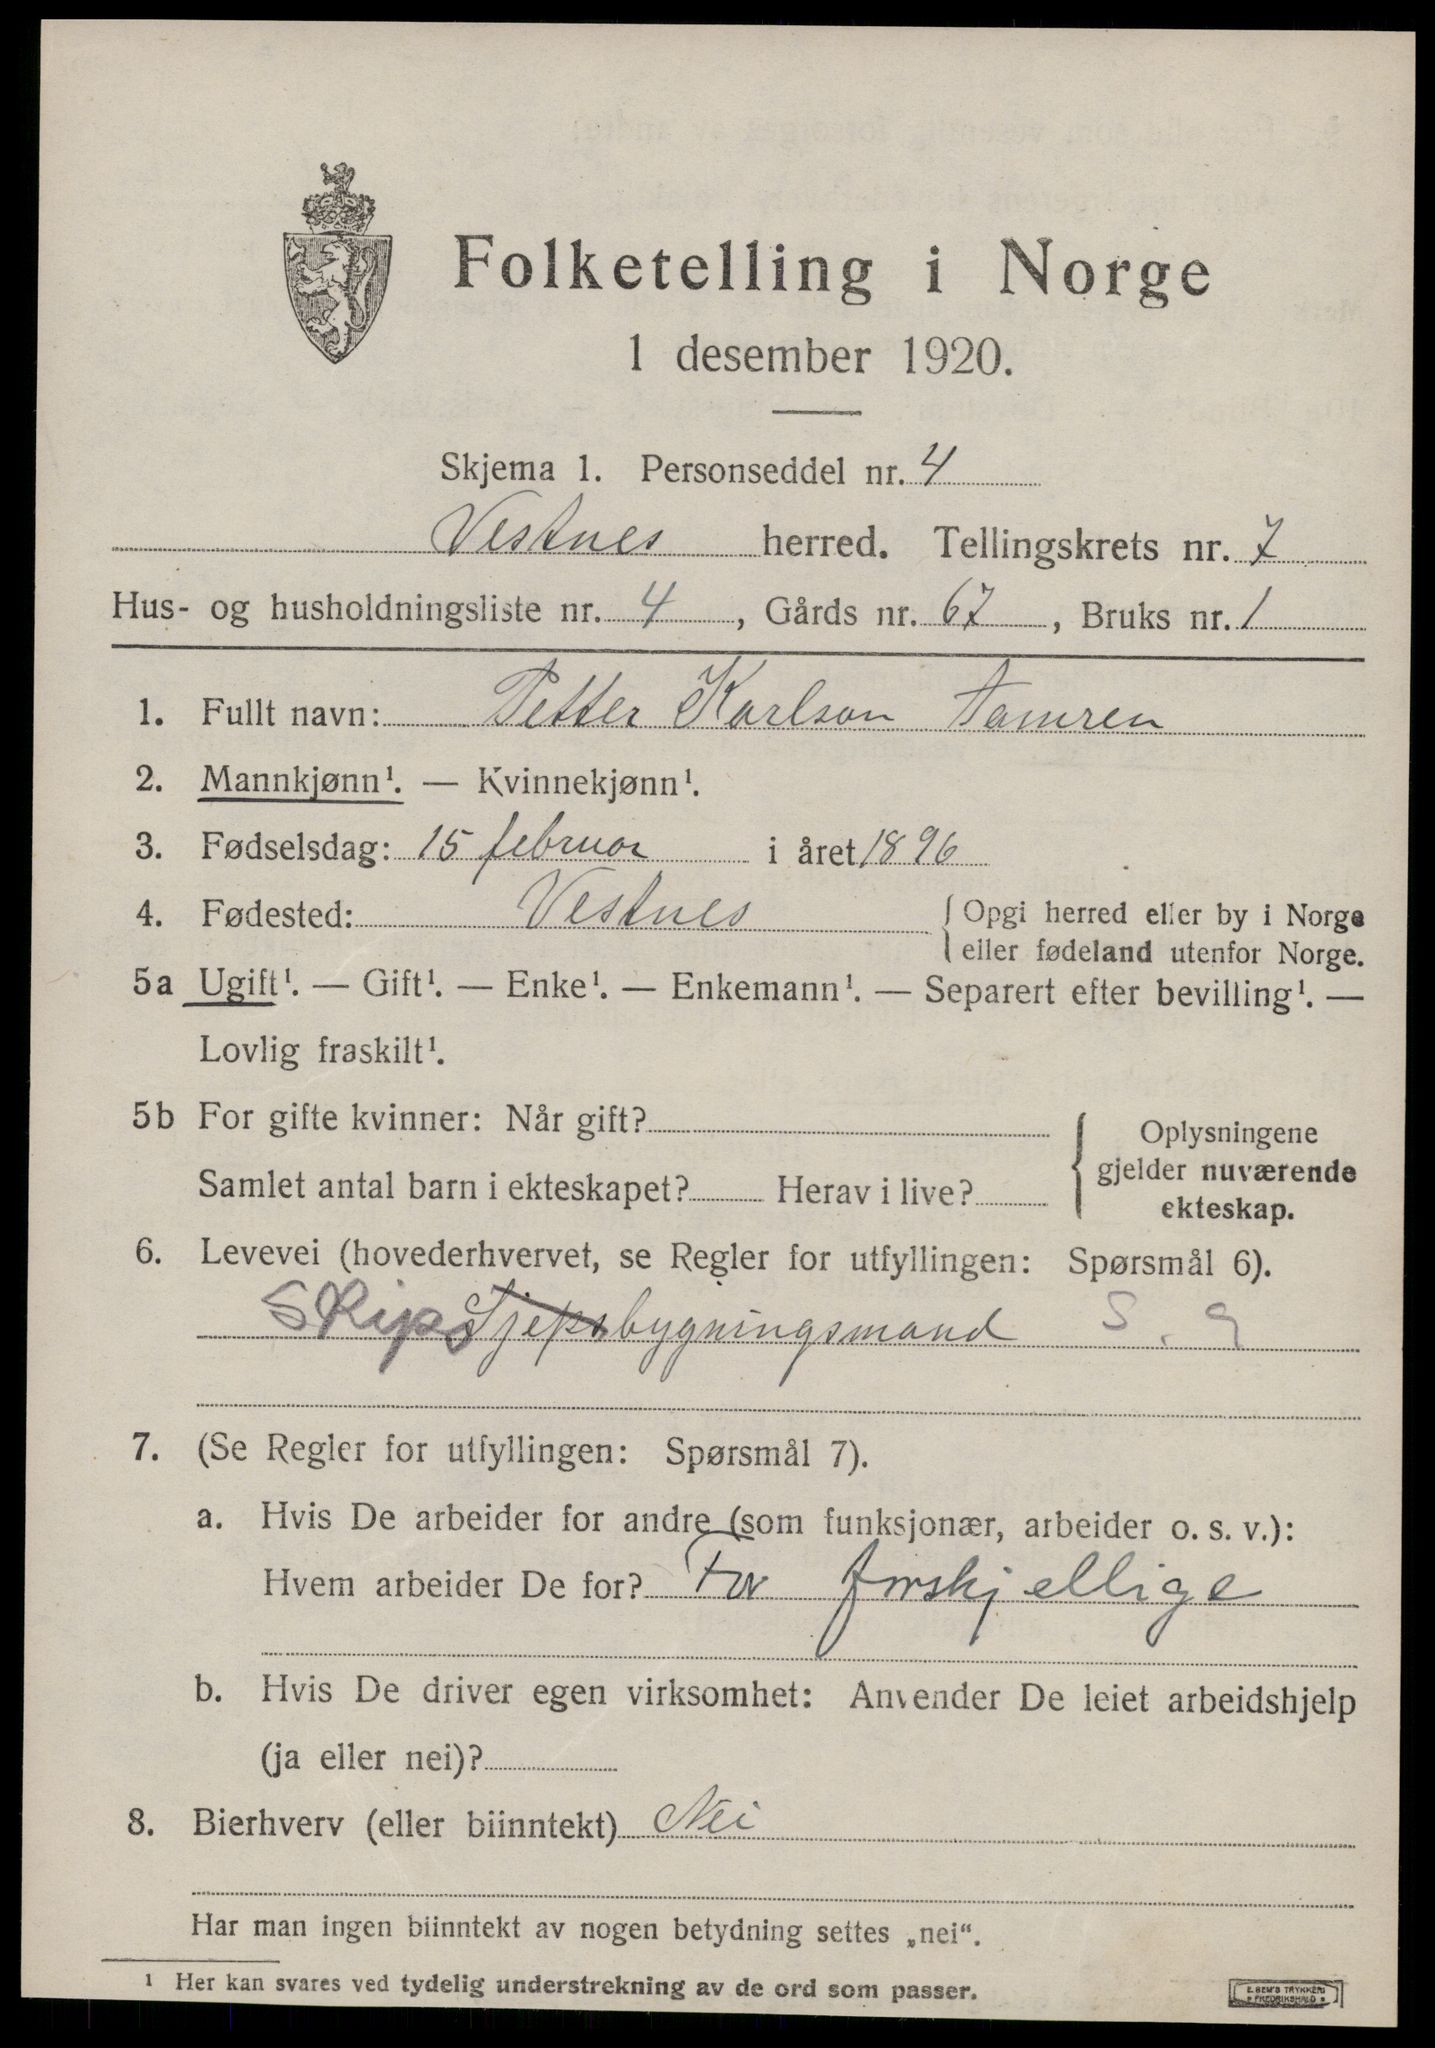 Folketelling i Norge
1 desember 1920.
Skjema 1. Personseddel nr. 4
Vestnes herred. Tellingskrets nr. 7
Hus- og husholdningsliste nr. 4, Gårds nr. 67, Bruks nr. 1
1. Fullt navn: Petter Karlson Tamren
2. Mannkjønn¹. — Kvinnekjønn¹.
3. Fødselsdag: 15 februar i året 1896
4. Fødested: Vestnes {Opgi herred eller by i Norge
eller fødeland utenfor Norge.
5a Ugift¹. — Gift¹. — Enke¹. — Enkemann¹. — Separert efter bevilling¹. —
Lovlig fraskilt¹.
5b For gifte kvinner: Når gift?
Samlet antal barn i ekteskapet? Herav i live?
Oplysningene
gjelder nuværende
ekteskap.
6. Levevei (hovederhvervet, se Regler for utfyllingen: Spørsmål 6).
Skips Sjepsbygningsmand S. 9
7. (Se Regler for utfyllingen: Spørsmål 7).
a. Hvis De arbeider for andre (som funksjonær, arbeider o. s. v.):
Hvem arbeider De for? For forskjellige
b. Hvis De driver egen virksomhet: Anvender De leiet arbeidshjelp
(ja eller nei)?
8. Bierhverv (eller biinntekt) Nei
Har man ingen biinntekt av nogen betydning settes „nei“.
¹ Her kan svares ved tydelig understrekning av de ord som passer.
E. SEM'S TRYKKERI
• FREDRIKSHALD •